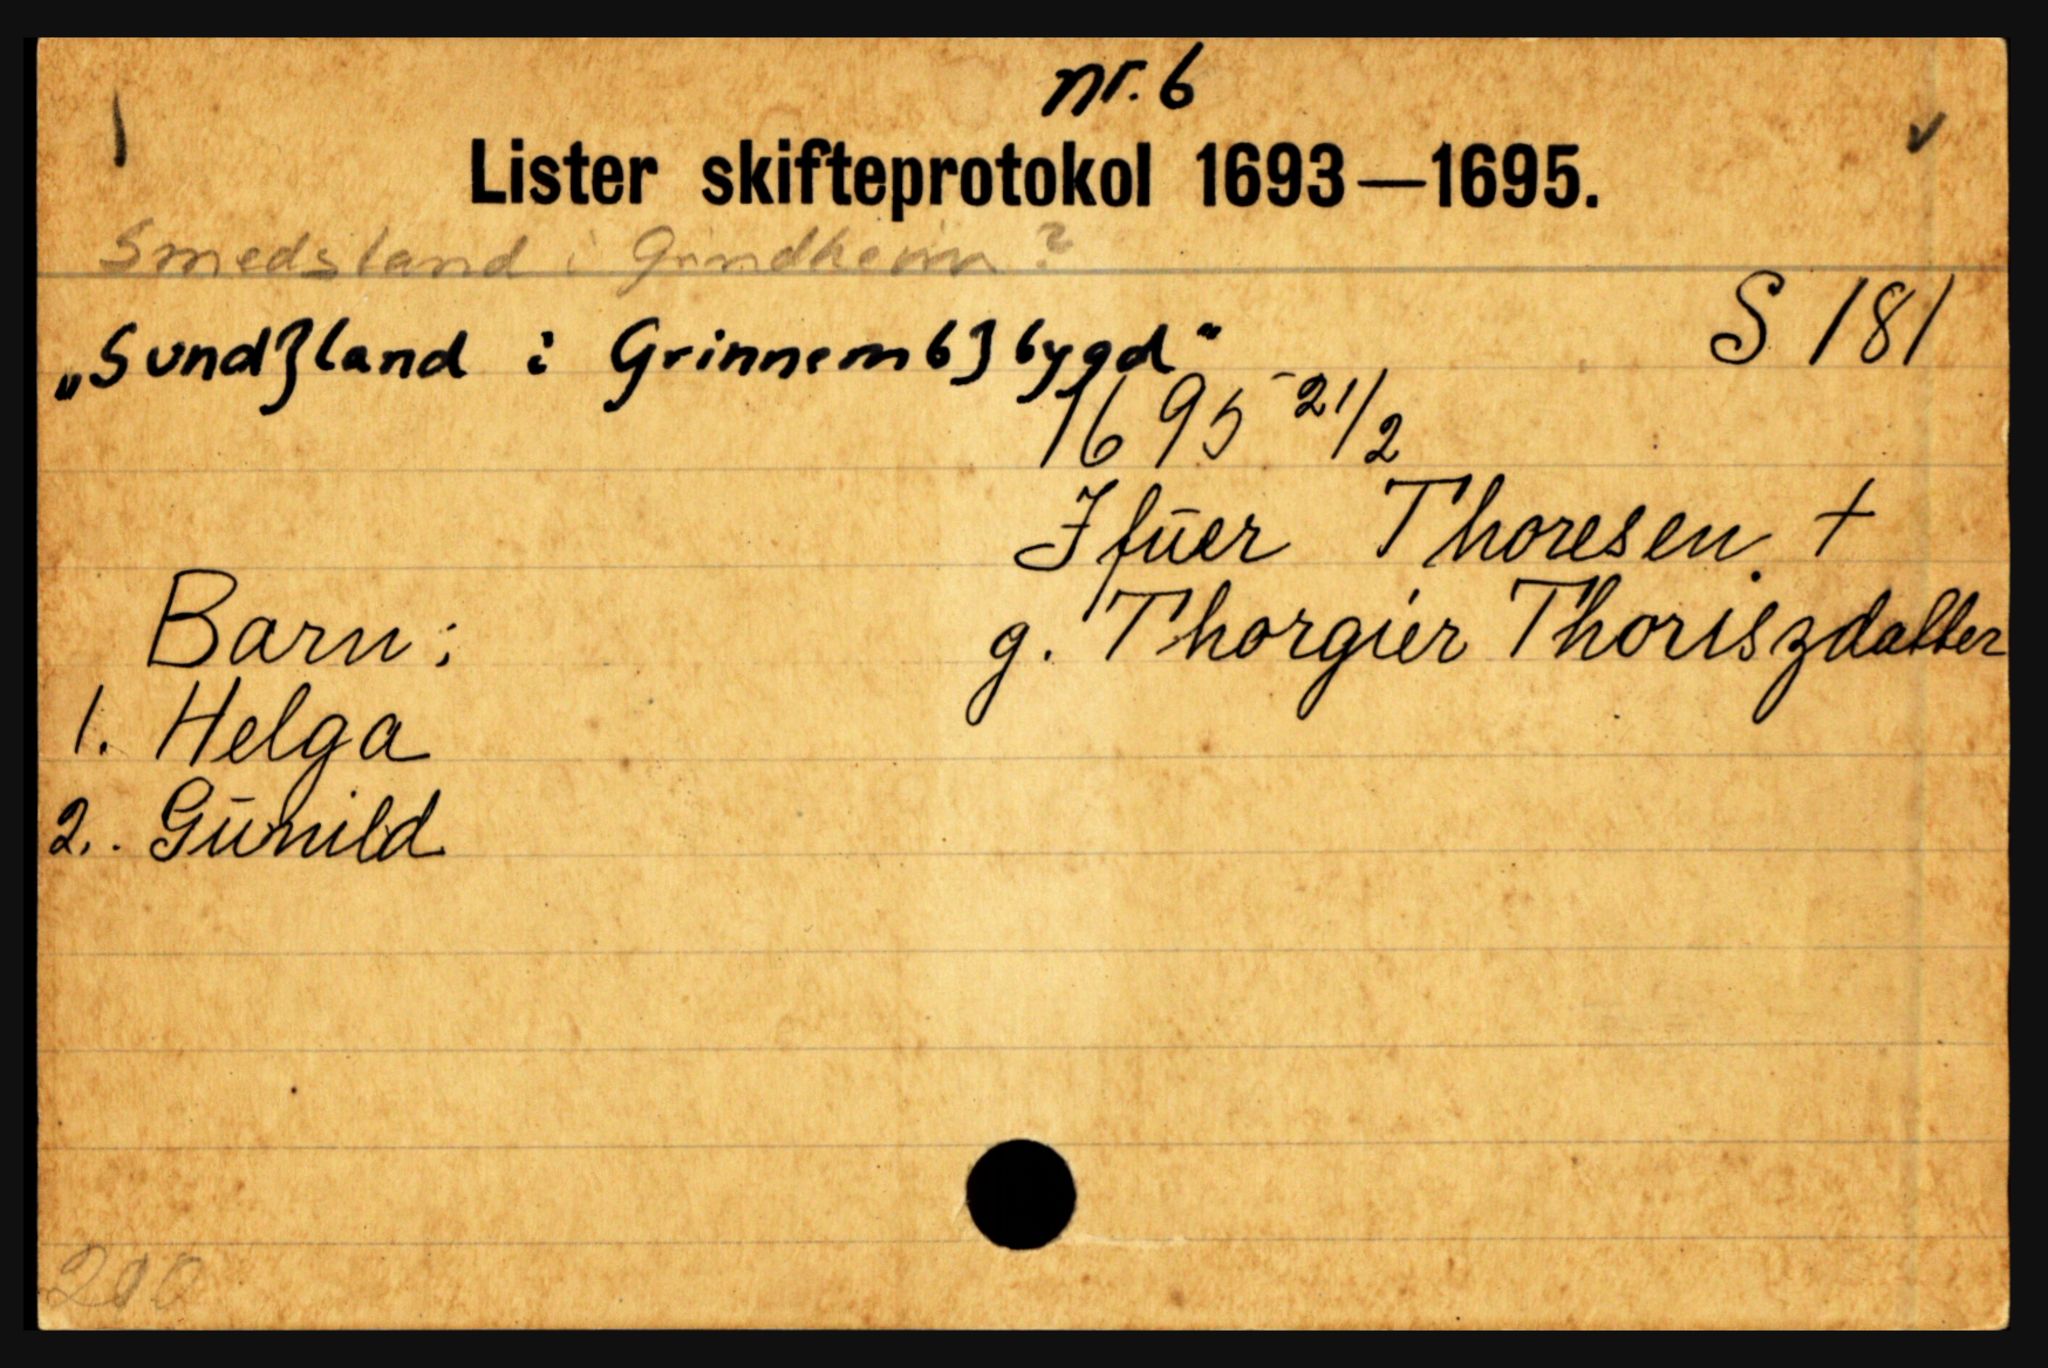 nr. 6
1 ✓
Lister skifteprotokol 1693—1695.
Smedsland i Grindheim?
S 181
„Sundʒland i Grinnembʒ bygd“
1695 - 21/2
Ifūer Thoresen. +
Barn: g. Thorgier Thoriszdatter
1. Helga
2. Gūnild
200